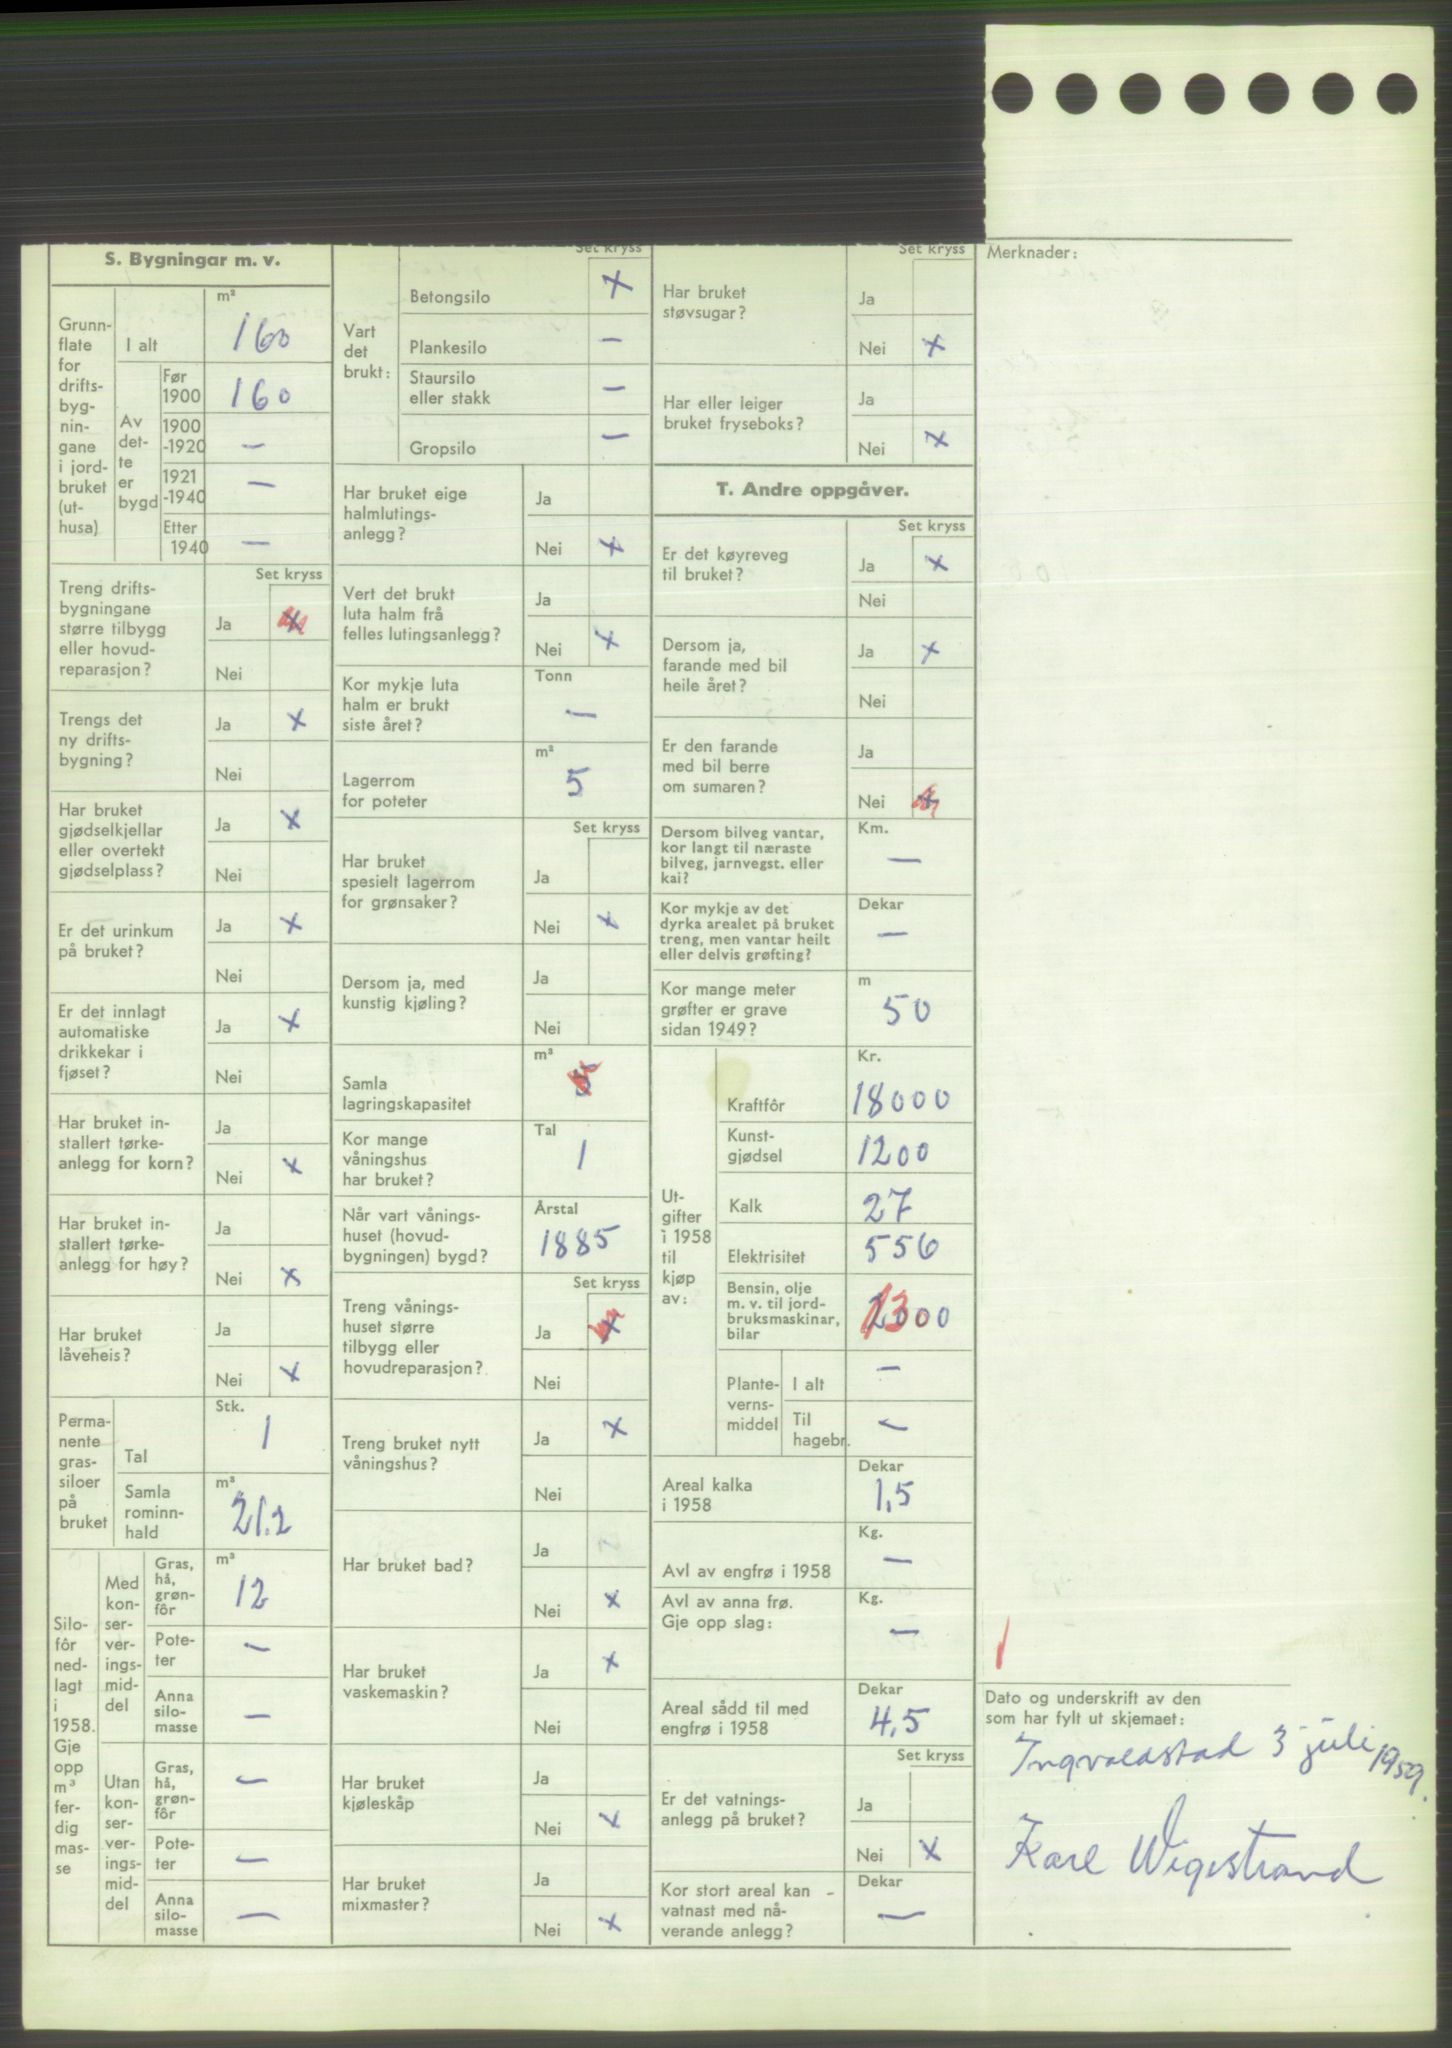 S. Bygningar m. v.
Grunn-
flate
for
drifts-
byg-
nin-
gane
i jord-
bruket
(ut-
husa)
I alt
m²
160
Av
det-
te
er
bygd
Før
1900
160
1900
-1920
—
1921
-1940
—
Etter
1940
—
Set kryss
Treng drifts-
bygningane
større tilbygg
eller hovud-
reparasjon?
Ja
x
Nei
Trengs det
ny drifts-
bygning?
Ja x
Nei
Har bruket
gjødselkjellar
eller overtekt
gjødselplass?
Ja x
Nei
Er det urinkum
på bruket?
Ja x
Nei
Er det innlagt
automatiske
drikkekar i
fjøset?
Ja x
Nei
Har bruket in-
stallert tørke-
anlegg for korn?
Ja
Nei x
Har bruket in-
stallert tørke-
anlegg for høy?
Ja
Nei x
Har bruket
låveheis?
Ja
Nei x
Perma-
nente
gras-
siloer
på
bruket
Tal
Stk.
1
Samla
rominn-
hald
m³
21.2
Silo-
fôr
ned-
lagt
i
1958.
Gje
opp
m³
fer-
dig
mas-
se
Med
kon-
ser-
ver-
ings-
mid-
del
Gras,
hå,
grøn-
fôr
m³
12
Pote-
ter
—
Anna
silo-
masse
—
Utan
kon-
ser-
ver-
ings-
mid-
del
Gras,
hå,
grøn-
fôr
—
Pote-
ter
—
Anna
silo-
masse
—
Set kryss
Vart
det
brukt:
Betongsilo x
Plankesilo —
Staursilo
eller stakk —
Gropsilo —
Har bruket eige
halmlutings-
anlegg?
Ja
Nei x
Vert det brukt
luta halm frå
felles lutingsanlegg?
Ja
Nei x
Kor mykje luta
halm er brukt
siste året?
Tonn
—
Lagerrom
for poteter
m²
5
Set kryss
Har bruket
spesielt lagerrom
for grønsaker?
Ja
Nei x
Dersom ja, med
kunstig kjøling?
Ja
Nei
Samla
lagringskapasitet
m³
5
Kor mange
våningshus
har bruket?
Tal
1
Når vart vånings-
huset (hovud-
bygningen) bygd?
Årstal
1885
Set kryss
Treng vånings-
huset større
tilbygg eller
hovudreparasjon?
Ja x
Nei
Treng bruket nytt
våningshus?
Ja x
Nei
Har bruket bad?
Ja
Nei x
Har bruket
vaskemaskin?
Ja x
Nei
Har bruket
kjøleskåp
Ja
Nei x
Har bruket
mixmaster?
Ja
Nei x
Set kryss
Har bruket
støvsugar?
Ja
Nei x
Har eller leiger
bruket fryseboks?
Ja
Nei x
T. Andre oppgåver.
Set kryss
Er det køyreveg
til bruket?
Ja x
Nei
Dersom ja,
farande med bil
heile året?
Ja x
Nei
Er den farande
med bil berre
om sumaren?
Ja
Nei x
Dersom bilveg vantar,
kor langt til næraste
bilveg, jarnvegst. eller
kai?
Km.
—
Kor mykje av det
dyrka arealet på bruket
treng, men vantar heilt
eller delvis grøfting?
Dekar
—
Kor mange meter
grøfter er grave
sidan 1949?
m
50
Ut-
gifter
i 1958
til
kjøp
av:
Kraftfôr
Kr.
18000
Kunst-
gjødsel
1200
Kalk
27
Elektrisitet
556
Bensin, olje
m. v. til jord-
bruksmaskinar,
bilar
2000
13
Plante-
verns-
middel
I alt —
Til
hagebr. —
Areal kalka
i 1958
Dekar
1,5
Avl av engfrø i 1958
Kg.
—
Avl av anna frø.
Gje opp slag:
Kg.
—
Areal sådd til med
engfrø i 1958
Dekar
4,5
Set kryss
Er det vatnings-
anlegg på bruket?
Ja
Nei x
Kor stort areal kan
vatnast med nå-
verande anlegg?
Dekar
—
Merknader:
1
Dato og underskrift av den
som har fylt ut skjemaet:
Ingvaldstad 3 juli 1959.
Karl Wigestrand